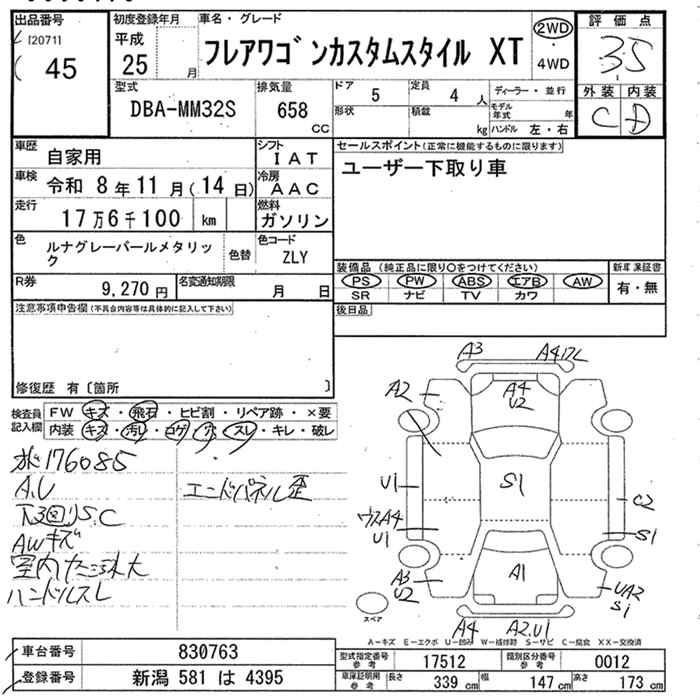 出品番号
[2071]
45
初度登録年月
平成
25 月
車名・グレード
フレアワゴンカスタムスタイル XT
2WD
・
4WD
評価点
3.5
外装 内装
C D
型式
DBA-MM32S
排気量
658
CC
ドア
5
定員
4 人
形状
積載
kg
ディーラー・並行
モデル
年式 年
ハンドル 左・右
車歴
自家用
シフト
IAT
車検
令和 8年11月(14日)
冷房
AAC
走行
17万6千100 km
燃料
ガソリン
色
ルナグレーパールメタリッ
ク
色替
色コード
ZLY
R券
9,270円
名変通知期限
月 日
セールスポイント(正常に機能するものに限ります)
ユーザー下取り車
装備品(純正品に限り○をつけてください)
PS PW ABS エアB AW
SR ナビ TV カワ
新車保証書
有・無
後日品
注意事項申告欄(不具合内容等は具体的に記入して下さい)
修復歴 有〔箇所 〕
検査員
記入欄
FW キズ・飛石・ヒビ割・リペア跡・×要
内装 キズ・汚レ・コゲ・穴・スレ・キレ・破レ
176085
A.U
下回りS.C
AWキズ
ハンドルスレ
エンドパネル歪
A3
A4
A2
A4
U2
U1
S1
C2
ウスA4
U1
S1
A3
U2
A1
UA2
S1
A4
A2.U1
スペア
A-キズ E-エクボ U-凹み W-補修跡 S-サビ C-腐食 XX-交換済
車台番号
830763
登録番号
新潟 581 は 4395
型式指定番号
参考
17512
類別区分番号
参考
0012
車庫証明用
参考
長さ
339 cm
幅
147 cm
高さ
173 cm